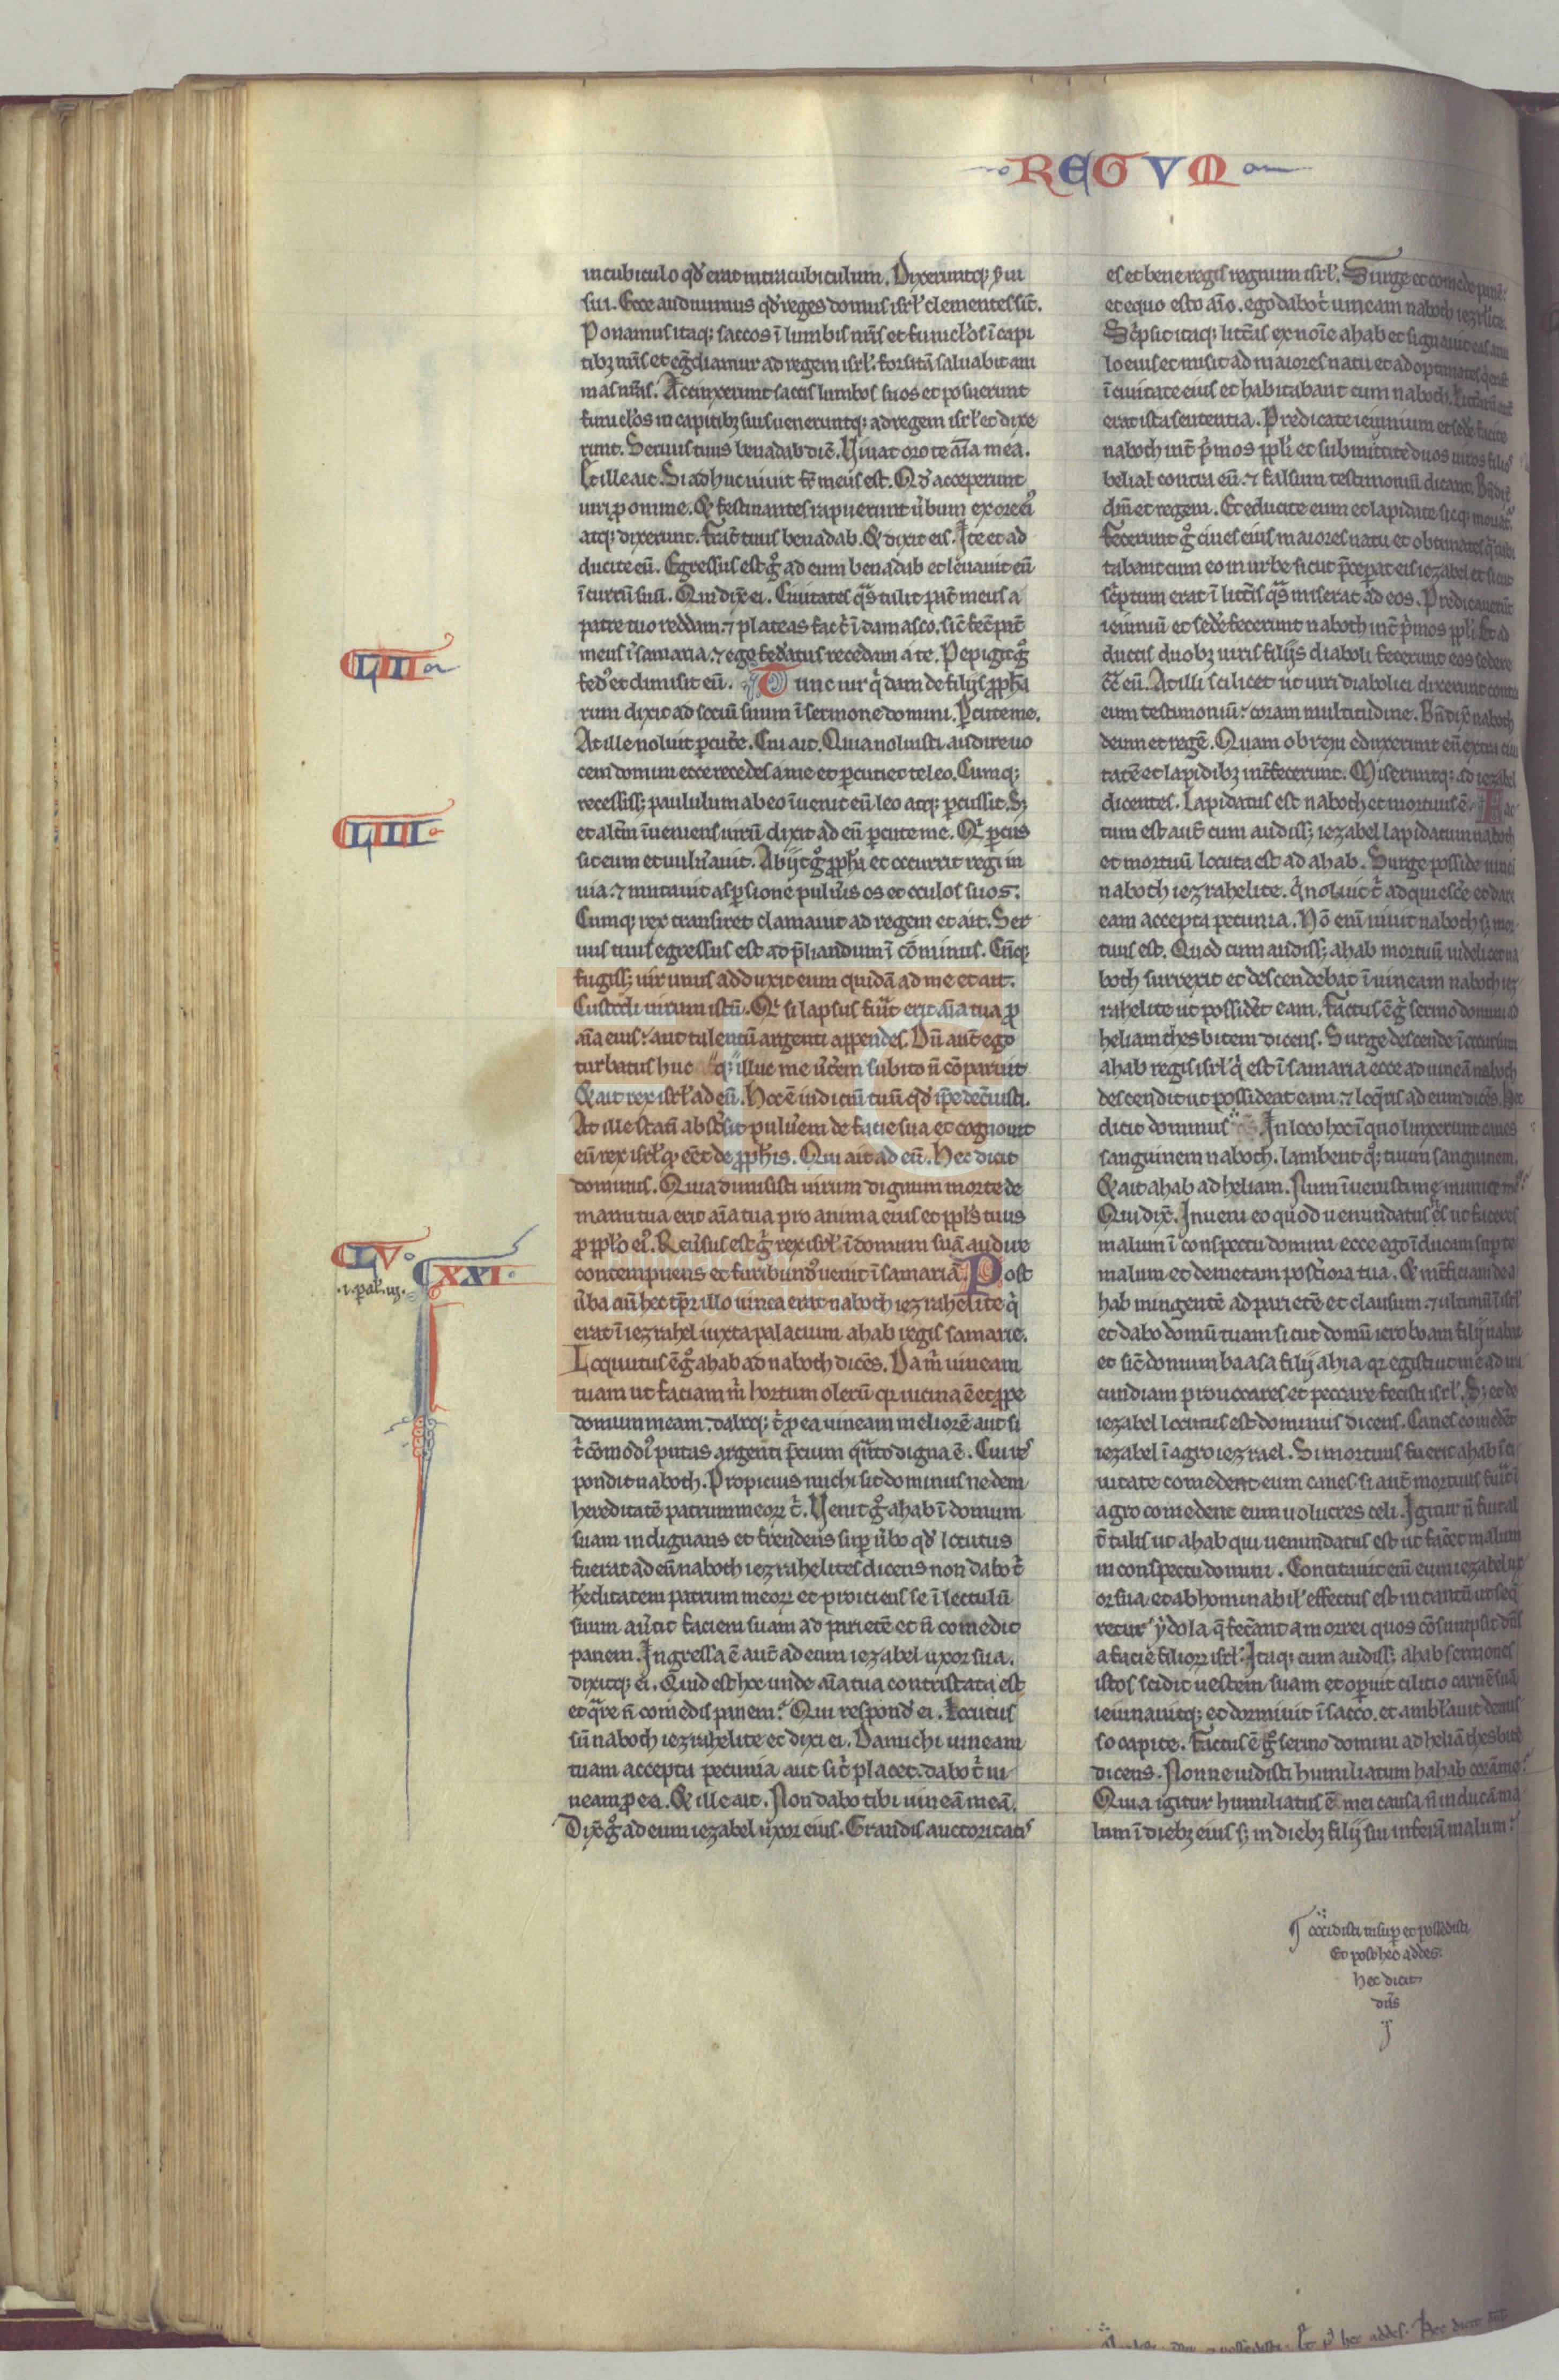 REGVM
in cubiculo qd̛ erat intra cubiculum. Dixeruntq; ẜui
sui. Ecce audiuimus qd̛ reges domus isrł clementes sīt.
Ponamus itaq; saccos ī lumbis nr̄is et funicłos ī capi
tibꝫ nr̄is et eg̃diamur ad regem isrł. forsitā saluabit ani
mas nr̄as. Accinxerunt saccis lumbos suos et posuerunt
funicłos in capitibꝫ suis ueneruntq; ad regem isrł et dixe
runt. Seruus tuus benadab dic̄. Viuat oro te aīa mea.
Et ille ait. Si adhuc uiuit fr̄ meus est. Qd̛ acceperunt
uiri ꝓ omine. Et festinantes rapuerunt ūbum ex ore eiꝰ
atq; dixerunt. Frat̄ tuus benadab. Et dixit eis. Ite et ad
ducite eū. Egressus est g̊ ad eum benadab et leuauit eū
ī currū suū. Qui dix̄ ei. Ciuitates q̃s tulit pat̄ meus a
patre tuo reddam. ⁊ plateas fac t̄ ī damasco. sic̄ fec̄ pat̄
meus ī samaria. ⁊ ego fedatus recedam a te. Pepigit g̊
fedꝰ et dimisit eū. Tunc uir q̇dam de filijs ꝓpħa
rum dixit ad sociū suum ī sermone domini. ꝑcute me.
At ille noluit ꝑcut̄e. Cui ait. Quia noluisti audire uo
cem domini ecce recedes a me et ꝑcutiet te leo. Cumq;
recessiss; paululum ab eo īuenit eū leo atq; ꝑcussit. Sꝫ
et alt̄m īueniens uirū dixit ad eū ꝑcute me. Qi ꝑcus
sit eum et uuln̄auit. Abijt g̊ ꝓpħa et occurrit regi in
uia. ⁊ mutauit asꝑsione puluīs os et oculos suos.
Cumq; rex transiret clamauit ad regem et ait. Ser
uus tuus egressus est ad p̄liandum ī cōminus. Cūq;
fugiss; uir unus adduxit eum quidā ad me et ait.
Custodi uirum istū. Qi si lapsus fūit erit aīa tua ꝓ
aīa eius. aut talentū argenti appendes. Dū aut̄ ego
turbatus huc q; illuc me ūt̄em subito n̄ cōparuit
Et ait rex isrł ad eū. Hoc ē iudiciū tuū qd̛ ip̄e dec̄uisti.
At ille stati abst̄sit puluēm de facie sua et cognouit
eū rex isrł qꝫ eēt de ꝓpħis. Qui ait ad eū. Hec dicit
dominus. Quia dimisisti uirum dignum morte de
manu tua erit aīa tua pro anima eius et ppłs tuus
ꝓ ppło eiꝰ. Reūsus est g̊ rex isrł ī domum suā audire
contempnens et furibundꝰ uenit ī samariā. Post
ūba aut̄ hec tp̄r illo uinea erat naboth iezrahelite q̇
erat ī iezrahel iuxta palacium ahab regis samarie.
Loquutus ē g̊ ahab ad naboth dicēs. Da m̄ uineam
tuam ut faciam m̄ hortum olerū qr uicina ē et ꝓpe
domum meam. daboq; t̄ ꝓ ea uineam meliorē aut si
t̄ cōmodiꝰ putas argenti p̄cium q̃nto digna ē. Cui res
pondit naboth. Propicius michi sit dominus ne dem
hereditatē patrum meoꝝ t̄. Venit g̊ ahab ī domum
suam indignans et frendens suꝑ ūbo qd̛ locutus
fuerat ad eū naboth iezrahelites dicens non dabo t̄
h̄editatem patrum meoꝝ et proiciens se ī lectulū
suum aūtit faciem suam ad parietē et n̄ comedit
panem. Ingressa ē aut̄ ad eum iezabel uxor sua.
dixitq; ei. Quid est hoc unde aīa tua contristata est
et q̃re n̄ comedis panem? Qui respond̛ ei. Locutus
sū naboth iezrahelite et dixi ei. Da michi uineam
tuam accepta pecunia aut si t̄ placet. dabo t̄ ui
neam ꝓ ea. Et ille ait. Non dabo tibi uineā meā.
Dix̄ g̊ ad eum iezabel uxor eius. Grandis auctoritatis
es et bene regis regnum isrł. Surge et comede panē.
et equo esto aīo. ego dabo t̄ uineam naboth
Sc̄psit itaq; litt̄as ex noīe ahab et signauit eas anu
lo eius et misit ad maiores natu et ad optimates
ī ciuitate eius et habitabant cum naboth.
erat ista sententia. Predicate ieiunium et sedē facite
naboth int̄ p̄mos ppłi et submittite duos uiros filios
belial contra eū. ⁊ falsum testimoniū dicant.
dm̄ et regem. Et educite eum et lapidate sicq;
Fecerunt g̊ ciues eius maiores natu et obtimates
tabant cum eo in urbe sicut p̄ceperat eis iezabel et sicut
sc̄ptum erat ī litt̄is q̃s miserat ad eos. Predicauerūt
ieiuniū et sedē fecerunt naboth int̄ p̄mos ppłi. Et ad
ductis duobꝫ uiris filijs diaboli fecerunt eos sedere
cōt̄ eū. At illi scilicet ut uiri diabolici dixerunt contra
eum testimoniū. coram multitudine. Bn̄dix̄ naboth
deum et regē. Quam ob rem eduxerunt eū extra ciui
tatē et lapidibꝫ int̄fecerunt. Miseruntq; ad iezabel
dicentes. Lapidatus est naboth et mortuus ē. Fac
tum est aut̄ cum audiss; iezabel lapidatum naboth
et mortuū locuta est ad ahab. Surge posside uineā
naboth iezrahelite. q̇ noluit t̄ adquiesc̄e et dare
eam accepta pecunia. Nō enī uiuit naboth sꝫ mor
tuus est. Quod cum audiss; ahab mortuū uidelicet na
both surrexit et descendebat ī uineam naboth iez
rahelite ut possid̄et eam. Factus ē g̊ sermo domini ad
heliam thesbitem dicens. Surge descende ī occursum
ahab regis isrł q̇ est ī samaria ecce ad uineā naboth
descendit ut possideat eam. ⁊ loq̄ris ad eum dicēs. Hec
dicit dominus In loco hoc ī quo linxerunt canes
sanguinem naboth. lambent q; tuum sanguinem.
Et ait ahab ad heliam. Num īuenisti me inimicum
Qui dix̄. Inueni eo quod uenundatus es ut faceres
malum ī conspectu domini ecce ego īducam suꝑ te
malum et demetam post̄iora tua. Et int̄ficiam de a
hab mingentē ad parietē et clausum. ⁊ ultimū ī isrł
et dabo domū tuam sicut domū ieroboam filij nabat
et sic̄ domum baasa filij ahia qr egisti ut me ad ira
cundiam prouocares et peccare fecisti isrł. Sꝫ et de
iezabel locutus est dominus dicens. Canes comedēt
iezabel ī agro iezrael. Si mortuus fuerit ahab ī ci
uitate comedent eum canes. si aut̄ mortuus fūit ī
agro comedent eum uolucres celi. Igitur n̄ fuit al
t̄ talis ut ahab qui uenundatus est ut fac̄et malum
in conspectu domini. Concitauit enī eum iezabel ux
or sua. et abhominabiľ effectus est in tantū ut seq̄
retur ydola q̄ fec̄ant amorrei quos cōsumpsit dn̄s
a facie filioꝝ isrł. Itaq; cum audiss; ahab sermones
istos scidit uestem suam et oꝑuit cilicio carnē suā
ieiunauitq; et dormiuit ī sacco. et ambłauit demis
so capite. Factus ē g̊ sermo domini ad heliā thesbitē
dicens. Nonne uidisti humiliatum hahab corā me?
Quia igitur humiliatus ē mei causa n̄ inducā ma
lum ī diebꝫ eius sꝫ in diebꝫ filij sui inferā malum
LII
LIII
LV
XXI
.i. pał. iij.
occidisti insuꝑ et possedisti
Et post hec addes.
hec dicit
dn̄s